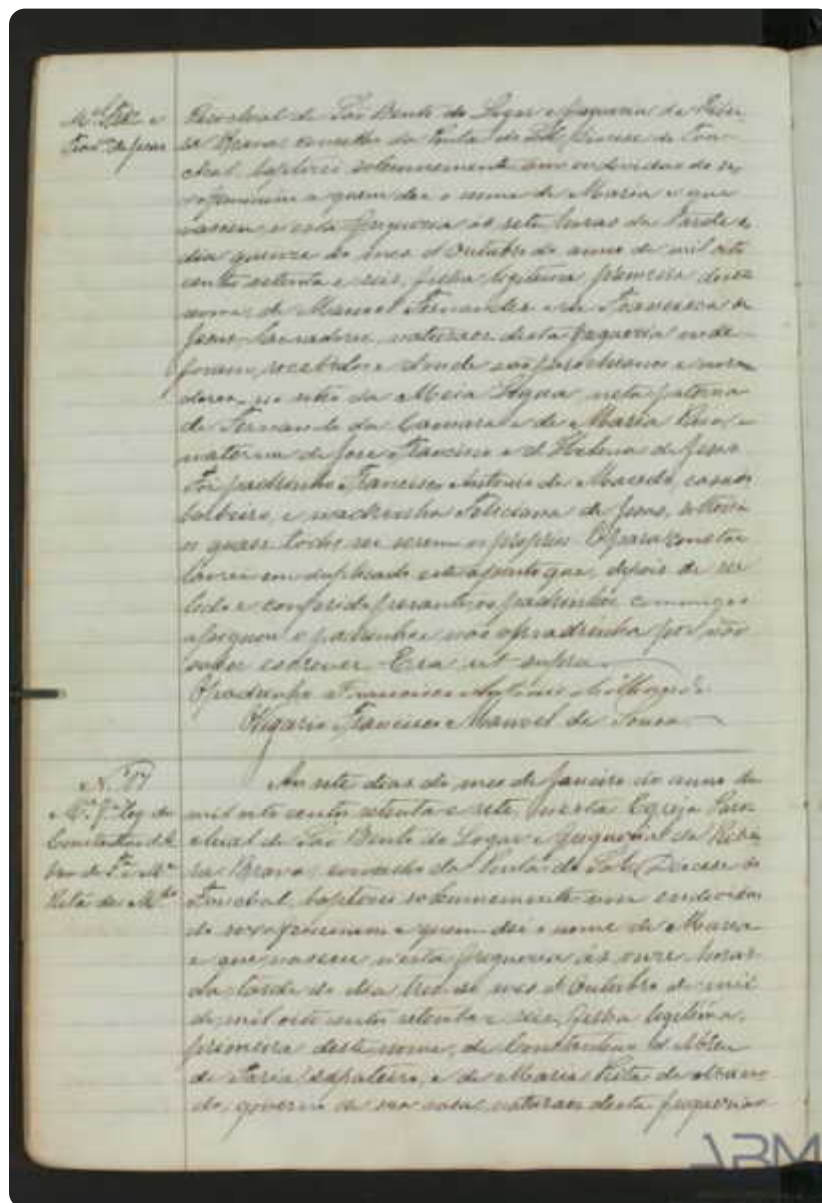 Mel Frz e
Franca de Jesus
Parochial de São Bento do Logar e freguezia da Ribei-
ra Brava, concelho da Ponta do Sol, Diocese do Fun-
chal, baptizei solemnemente um individuo do se-
xo femenino a quem dei o nome de Maria e que
nasceu n'esta freguezia ás sete horas da tarde do
dia quinze do mez d'Outubro do anno de mil oito
centos setenta e seis, filha legitima, primeira deste
nome, de Manoel Fernandes e de Francisca de
Jesus, lavradores, naturaes desta freguezia onde
foram recebidos e donde são parochianos e mora-
dores, no sitio da Meia Legua, neta paterna
de Fernando da Camara e de Maria Rosa, e
materna de José Francisco e d'Helena de Jesus.
Foi padrinho Francisco Antonio de Macedo, casado
barbeiro, e madrinha Feliciana de Jesus, solteira
os quaes todos sei serem os proprios. E para constar
lavrei em duplicado este assento que, depois de ser
lido e conferido perante os padrinhos, commigo
assignou o padrinho e não a madrinha por não
saber escrever. Era ut supra.
O padrinho Francisco Antonio de Macedo
O Vigario Francisco Manoel de Sousa
Ma fa leg. de
Constantino d'A
breu de Fa e Ma
Rita de Mdo
Aos sete dias do mez de Janeiro do anno de
mil oito centos setenta e sete, n'esta Egreja Paro-
chial de São Bento do Logar e freguezia da Ribei-
ra Brava, concelho da Ponta do Sol, Diocese do
Funchal, baptizei solemnemente um individuo
do sexo femenino a quem dei o nome de Maria
e que nasceu n'esta freguezia ás onze horas
da tarde do dia tres do mez d'Outubro de mil
de mil oito centos setenta e seis, filha legitima,
primeira deste nome, de Constantino d'Abreu
de Faria, sapateiro, e de Maria Rita de Mace-
do, governo de sua casa, naturaes desta freguezia
ABM